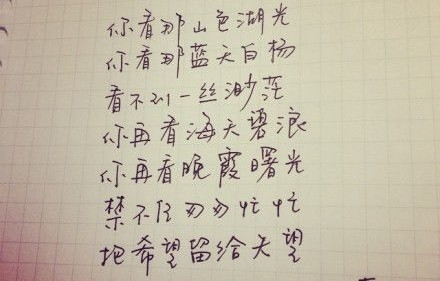 你看那山色湖光
你看那蓝天白杨
看不到一丝渺茫
你再看海天碧浪
你再看晚霞曙光
禁不住匆匆忙忙
把希望留给天望